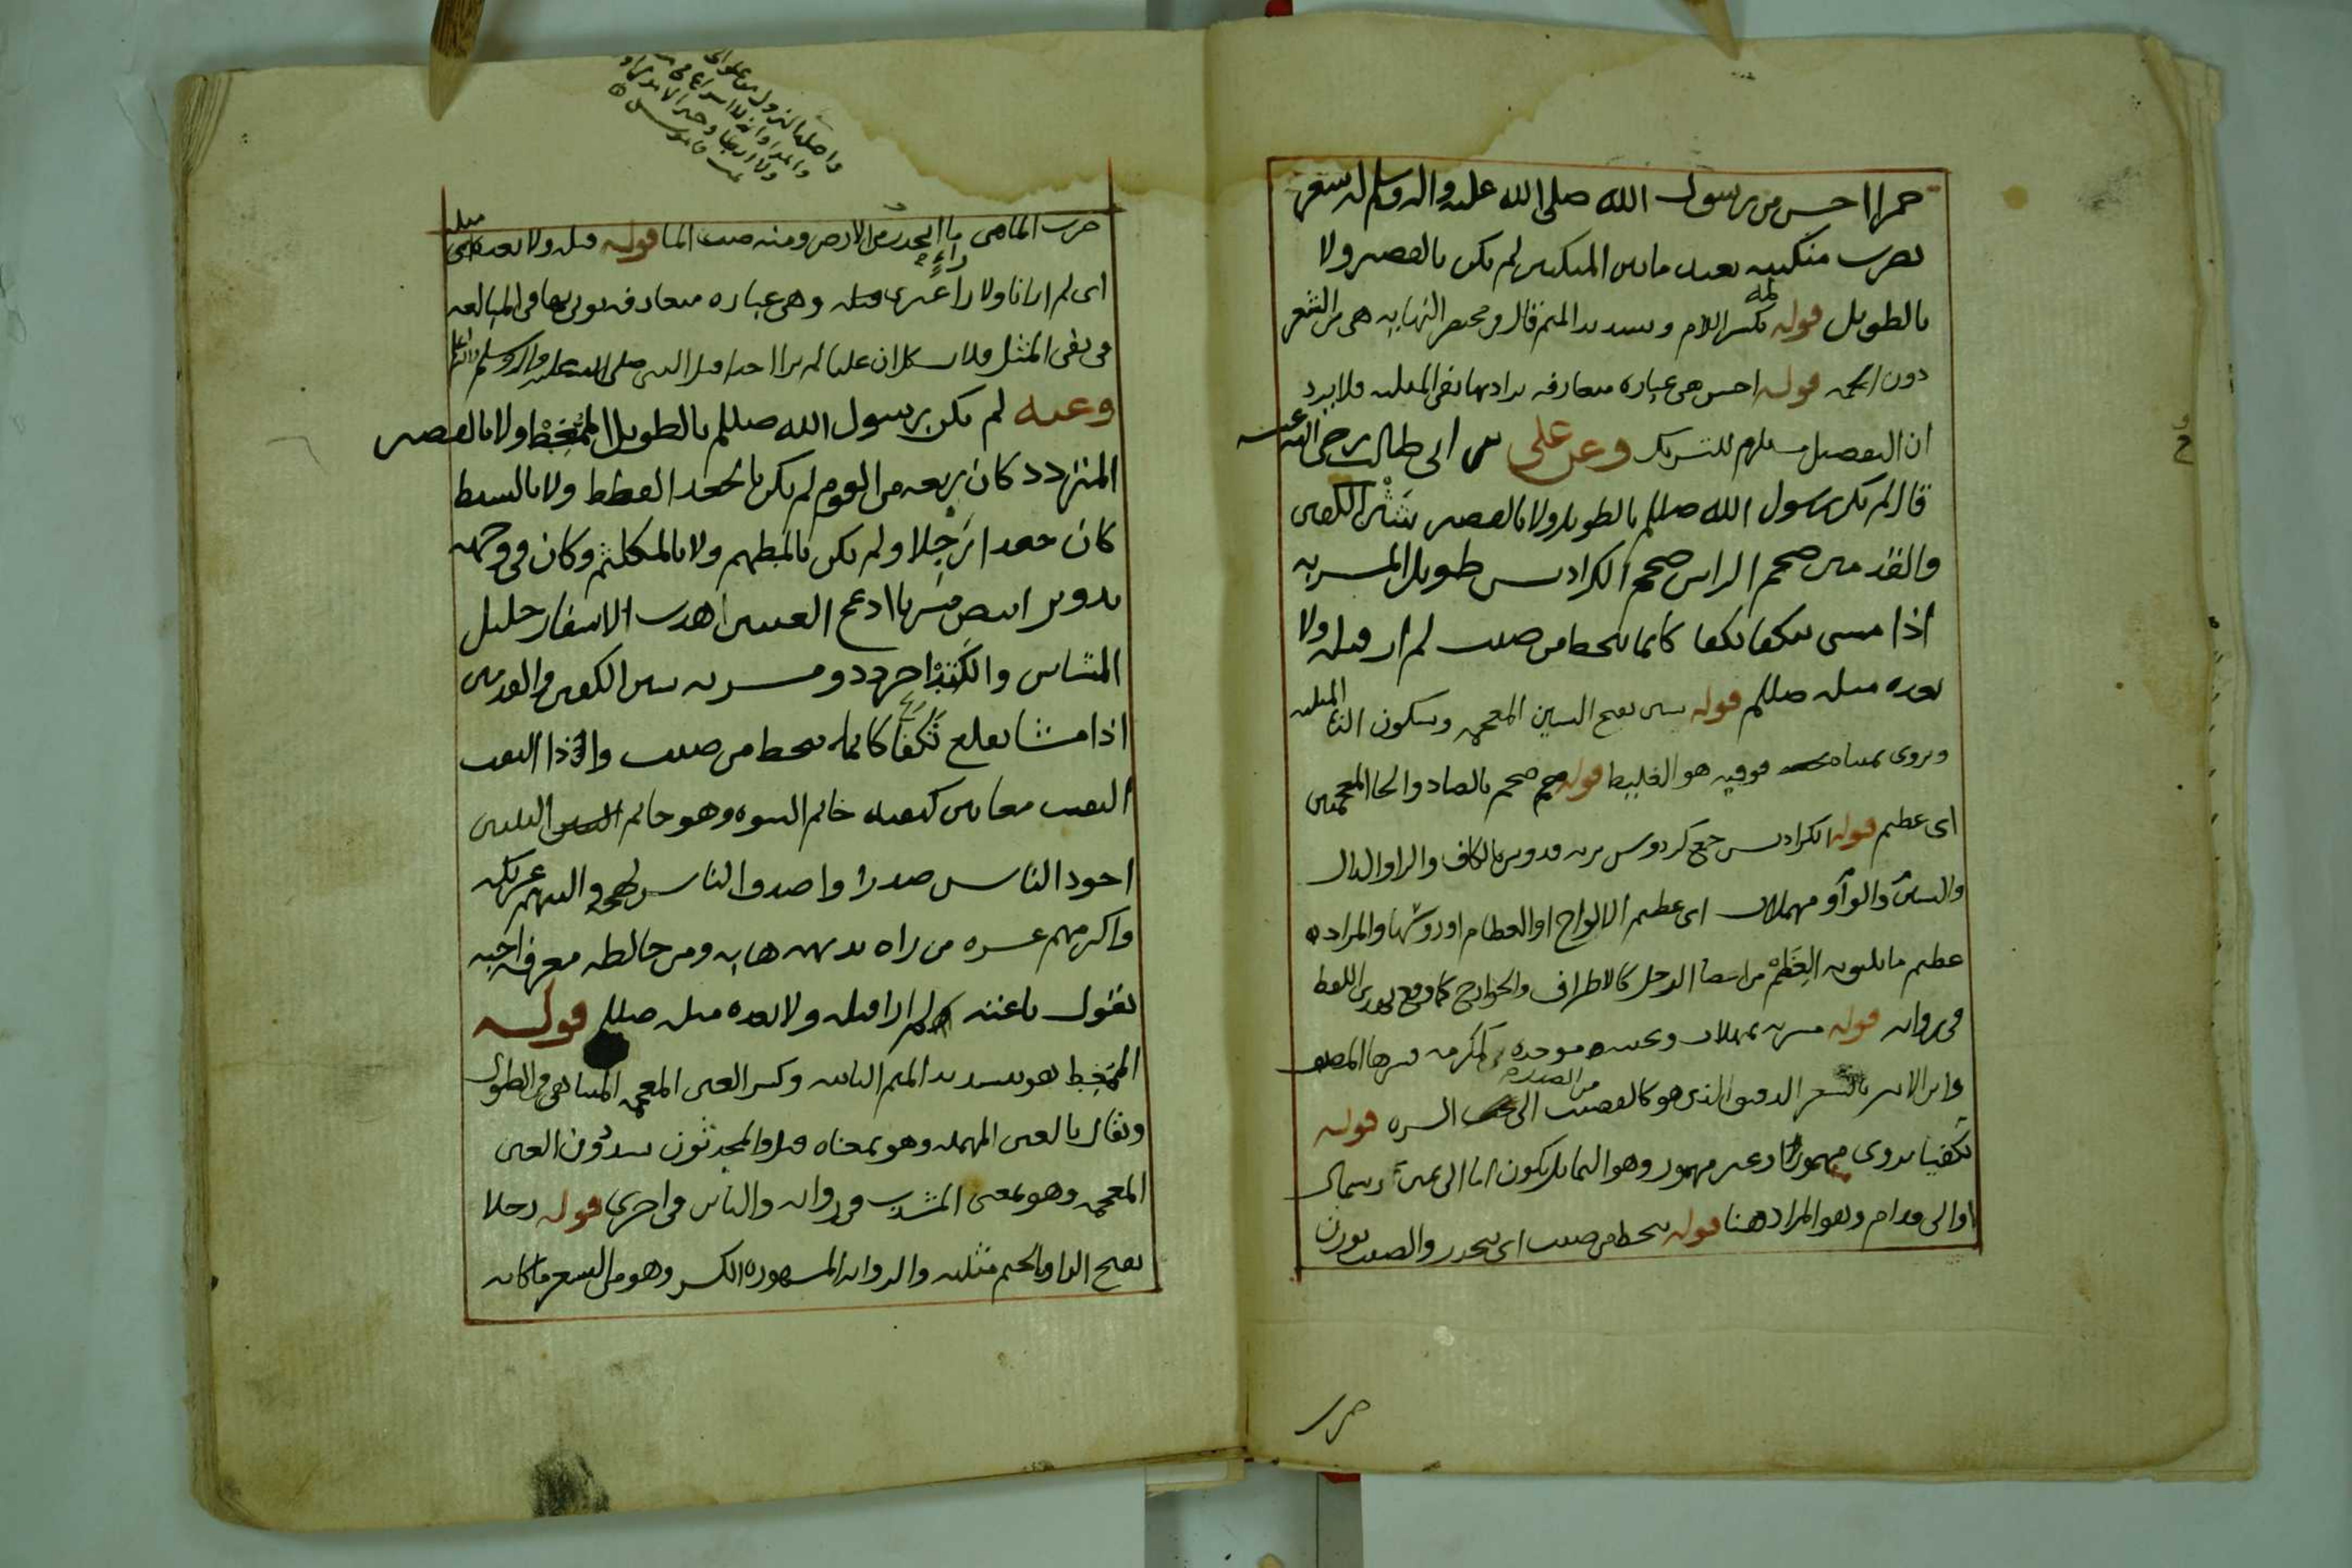 حمرا احسن من رسول الله صلى الله عليه واله وسلم له شعر
يضرب منكبيه بعيد ما بين المنكبين لم يكن بالقصير ولا
بالطويل قوله لمة بكسر اللام وتشديد الميم قال في مختصر النهايه هي من الشعر
دون الجمه قوله احسن هي عباره متعارفه يراد بها نفي المثليه فلا يرد
ان التفضيل مستلزم للتشريك وعن علي بن ابي طالب رضي الله عنه
قال لم يكن رسول الله صللم بالطويل ولا بالقصير شثن الكفين
والقدمين ضخم الراس ضخم الكراديس طويل المسربه
اذا مشى تكفا تكفا كانما ينحط من صبب لم ار قبله ولا
بعده مثله صللم قوله شثن بفتح الشين المعجمه وسكون الثا المثلثه
ويروى بمثناه فوقيه هو الغليظ قوله ضخم بالضاد والخا المعجمتين
اي عظيم قوله الكراديس جمع كردوس بزنه قدوس بالكاف والرا والدال
والسين والواو مهملات اي عظيم الالواح او العظام او روسها والمراد
عظيم ما يليق به العظم من اعضا الرجل كالاطراف والجوارح كما وقع بهذا اللفظ
في روايه قوله مسربه بمهملات وتحتيه موحده كمكرمه فسرها المصنف
وابن الاثير بالشعر الدقيق الذي هو كالقضيب من الصدر الى السره قوله
تكفيا يروى مهموزا وغير مهموز وهو التمايل يكون اما الى يمين وشمال
او الى قدام وهو المراد هنا قوله ينحط من صبب اي ينحدر والصبب بوزن
حرب
واصلها النزول من علو الى
تمت قاموس
حرب الماضي ما انحدر من الارض ومنه صبب الما قوله قبله ولا بعده مثله
اي لم ار انا ولا راءٍ غيري قبله وهي عباره متعارفه يوتى بها في المبالغه
في نفي المثل فلا يشكل ان عليا لم ير احدا قبل النبي صلى الله عليه واله وسلم
وعنه لم يكن رسول الله صللم بالطويل الممغط ولا بالقصير
المتردد كان ربعه من القوم لم يكن بالجعد القطط ولا بالسبط
كان جعدا رجلا ولم يكن بالمطهم ولا بالمكلثم وكان في وجهه
تدوير ابيض مشربا ادعج العينين اهدب الاشفار جليل
المشاش والكتد اجرد ذو مسربه شثن الكفين والقدمين
اذا مشا تقلع تكفا كانما ينحط من صبب واذا التفت
التفت معا بين كتفيه خاتم النبوه وهو خاتم النبيين
اجود الناس صدرا واصدق الناس لهجه والينهم عريكه
واكرمهم عشره من راه بديهه هابه ومن خالطه معرفه احبه
يقول ناعته لم ار قبله ولا بعده مثله صللم قوله
الممغط هو بتشديد الميم الثانيه وكسر الغين المعجمه المتناهي في الطول
ويقال بالعين المهمله وهو بمعناه قيل والمحدثون يشددون الغين
المعجمه وهو بمعنى المشذب في روايه والباين في اخرى قوله رجلا
بفتح الرا والجيم مثلثه والروايه المشهوره الكسر وهو من الشعر ما كانه